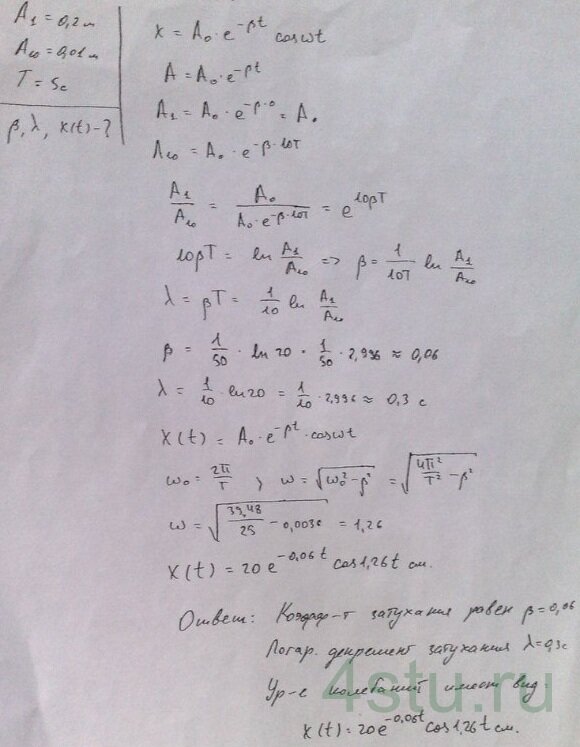 A₁ = 0,2 м
A₁₀ = 0,01 м
T = 5с
β, λ, x(t) - ?
x = A₀ · e^(-βt) cosωt
A = A₀ · e^(-βt)
A₁ = A₀ · e^(-β·0) = A₀
A₁₀ = A₀ · e^(-β·10T)
A₁/A₁₀ = A₀/(A₀ · e^(-β·10T)) = e^(10βT)
10βT = ln A₁/A₁₀ => β = 1/10T ln A₁/A₁₀
λ = βT = 1/10 ln A₁/A₁₀
β = 1/50 · ln 20 = 1/50 · 2,996 ≈ 0,06
λ = 1/10 · ln20 = 1/10 · 2,996 ≈ 0,3 с
x(t) = A₀ · e^(-βt) · cosωt
ω₀ = 2π/T ; ω = √(ω₀² - β²) = √(4π²/T² - β²)
ω = √(39,48/25 - 0,0036) = 1,26
x(t) = 20 e^(-0,06t) cos1,26t см.
Ответ: Коэфф-т затухания равен β = 0,06
Логар. декремент затухания λ = 0,3с
Ур-е колебаний имеет вид
x(t) = 20e^(-0,06t) cos1,26t см.
4stu.ru